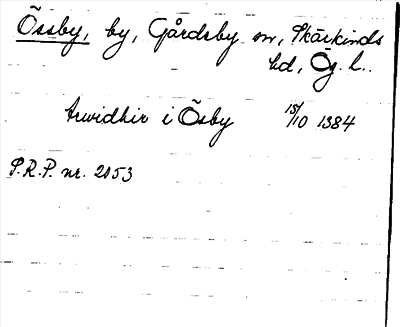 Össby, by, Gårdeby sn, Skärkinds
hd, Ög. l..
Arwidhir i Ösby 15/10 1384
P.R.P. nr. 2153